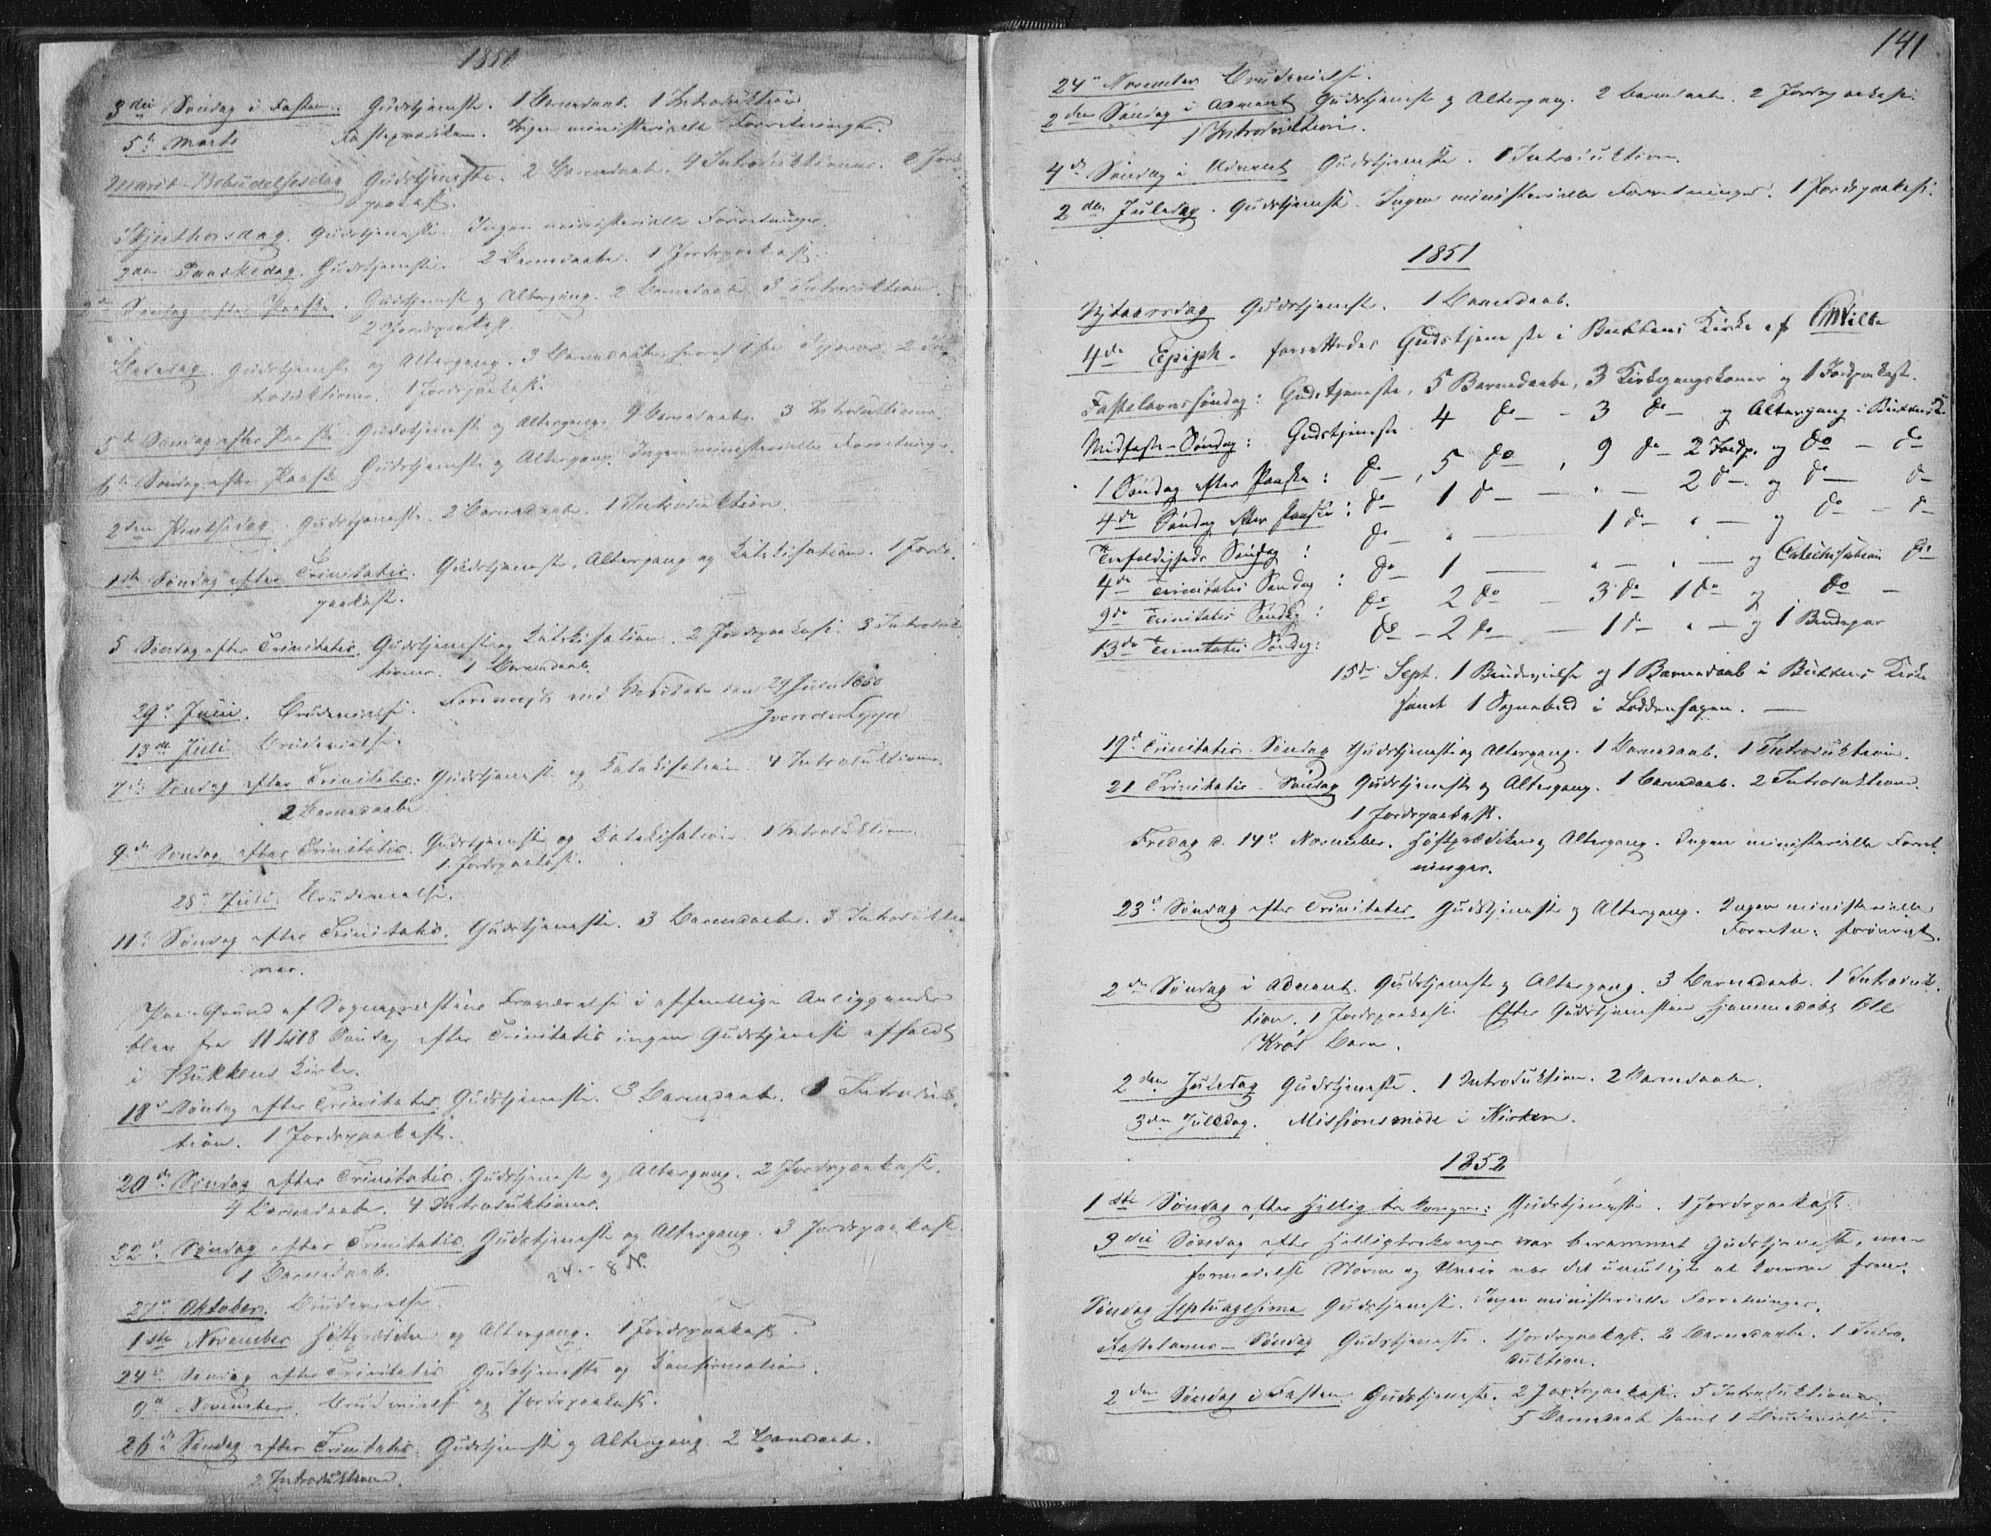 1850
3die Søndag i Fasten. Gudstjeneste. 1 Barnedaab. 1 Introduktion
5te Marts Fasteprædiken. Ingen ministerielle Forretninger.
Mariæ Bebudelsesdag Gudstjeneste. 2 Barnedaab. 4 Introduktioner. 2 Jords-
paakast.
Skjerthorsdag. Gudstjeneste. Ingen ministerielle Forretninger.
2den Paaskedag. Gudstjeneste. 2 Barnedaab. 1 Jordspaakast.
2den Søndag efter Paaske. Gudstjeneste og Altergang. 2 Barnedaab 3 Introduktioner.
2 Jordspaakast.
Bededag. Gudstjeneste og Altergang. 3 Barnedaab 2 In-
troduktioner. 1 Jordspaakast.
5te Søndag efter Paaske. Gudstjeneste og Altergang. 9 Barnedaab. 3 Introduktioner.
6te Søndag efter Paaske Gudstjeneste og Altergang. Ingen ministerielle Forretninger.
2den Pintsedag. Gudstjeneste. 2 Barnedaab. 1 Introduktion.
1ste Søndag efter Trinitatis. Gudstjeneste, Altergang og Katekisation. 1 Jords-
paakast.
5 Søndag efter Trinitatis. Gudstjeneste og Katekisation. 2 Jordspaakast. 3 Introduk-
tioner. 1 Barnedaab.
29de Juni. Brudevielse. Foreviist ved Visitats den 29 Juli 1850
13de Juli Brudevielse.
7de Søndag efter Trinitatis: Gudstjeneste og Katekisation. 4 Introduktioner.
2 Barnedaab.
9de Søndag efter Trinitatis. Gudstjeneste og Katekisation. 1 Introduktion.
1 Jordspaakast.
28de Juli Brudevielse.
11te Søndag efter Trinitatis. Gudstjeneste. 3 Barnedaab. 3 Introduktio-
ner.
Paa Grund af Sognepræstens Fraværelse i offentlige Anliggender
blev fra 11 til 18 Søndag efter Trinitatis ingen Gudstjeneste afholdt
i Bukkens Kirke.
18de Søndag efter Trinitatis. Gudstjeneste. 3 Barnedaab. 1 Introduk-
tion. 1 Jordspaakast.
20de Søndag efter Trinitatis. Gudstjeneste og Altergang. 2 Jordspaakast.
4 Barnedaab. 4 Introduktioner.
22de Søndag efter Trinitatis. Gudstjeneste og Altergang. 3 Jordspaakast
1 Barnedaab.
27de Oktober. Brudevielse.
1ste November Høstprædiken og Altergang. 1 Jordspaakast.
24de Søndag efter Trinitatis Gudstjeneste og Konfirmation.
9de November. Brudevielse og Jordspaakast.
26de Søndag efter Trinitatis. Gudstjeneste og Altergang. 2 Barnedaab.
2 Introduktioner.
141
24de November Brudevielse.
2den Søndag i Advent Gudstjeneste og Altergang. 2 Barnedaab. 2 Jordspaakast.
1 Introduktion.
4de Søndag i Advent Gudstjeneste. 1 Introduktion.
2den Juledag. Gudstjeneste. Ingen ministerielle Forretninger. 1 Jordspaakast.
1851
Nytaarsdag Gudstjeneste. 1 Barnedaab.
4de Epiph. forrettedes Gudstjeneste i Bukkens Kirke af
Fastelavnssøndag: Gudstjeneste, 5 Barnedaab, 3 Kirkegangskoner og 1 Jordpaakast.
Midfaste-Søndag: Gudstjeneste 4 do — 3 do — og Altergang i Bukkens K
1 Søndag efter Paaske: do , 5 do , 9 do 2 Jordp. og do — do
4de Søndag efter Paaske: do 1 do — " — 2 do og do do
Trefoldigheds Søndag: do " — 1 do " — og do — do
4de Trinitatis Søndag: do 1 — " — " — og Catechisation do
9de Trinitatis Søndag: do 2 do — 3 do 1 do og do —
13de Trinitatis Søndag: do — 2 do — 1 do " — og 1 Brudepar
15de Sept. 1 Brudevielse og 1 Barnedaab i Bukkens Kirke
samt 1 Sognebud i Loddenhagen. —
19de Trinitatis Søndag Gudstjeneste og Altergang. 1 Barnedaab. 1 Introduktion.
21 Trinitatis Søndag Gudstjeneste og Altergang. 1 Barnedaab. 2 Introduktioner.
1 Jordspaakast.
Fredag d. 14de November. Høstprædiken og Altergang. Ingen ministerielle Forret-
ninger.
23de Søndag efter Trinitatis. Gudstjeneste og Altergang. Ingen ministerielle
Forretn: forøvrigt.
2den Søndag i Advent. Gudstjeneste og Altergang. 3 Barnedaab. 1 Introduk-
tion. 1 Jordspaakast. Efter Gudstjenesten hjemmedøbt Ole
Barn.
2den Juledag Gudstjeneste. 1 Introduktion. 2 Barnedaab.
3die Juledag. Missionsmøde i Kirken.
1852
1ste Søndag efter Hellig tre konger: Gudstjeneste. 1 Jordspaakast.
3die Søndag efter Helligtrekonger var berammet Gudstjeneste, men
formedelst Storm og Uveir var det umuligt at komme frem.
Søndag Septuagesima Gudstjeneste. Ingen ministerielle Forretninger.
Fastelavns-Søndag Gudstjeneste. 1 Jordspaakast. 2 Barnedaab. 1 Intro-
duktion.
2den Søndag i Fasten. Gudstjeneste. 2 Jordspaakast. 5 Introduktioner.
5 Barnedaab samt 1 Brudevielse.